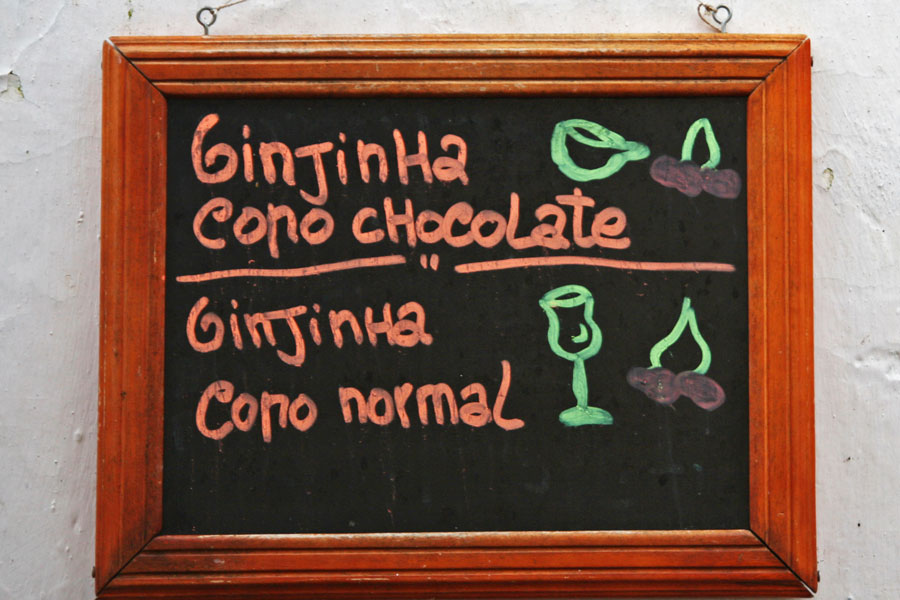 GinJinHa
Copo cHocolate
"
GinJinHa
Copo normal